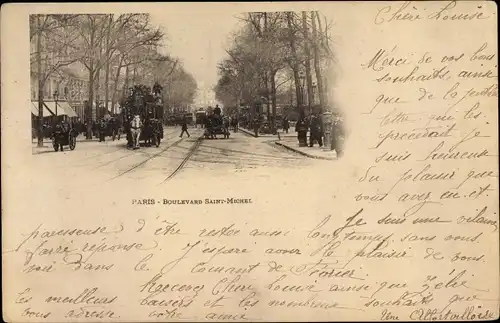 Chère Louise
Merci de vos bons
souhaits, ainsi
que de la jolie
lettre qui les
précédait je
suis heureuse
du plaisir que
vous avez eu et
Je suis une vilaine
PARIS - BOULEVARD SAINT-MICHEL
paresseuse d'être restée aussi longtemps sans vous
faire réponse. J'espère avoir le plaisir de vous
voir dans le courant de Février
Recevez Chère Louise ainsi que Zélie
les meilleurs baisers et les nombreux souhaits que
vous adresse votre amie
Une Albertvilloise